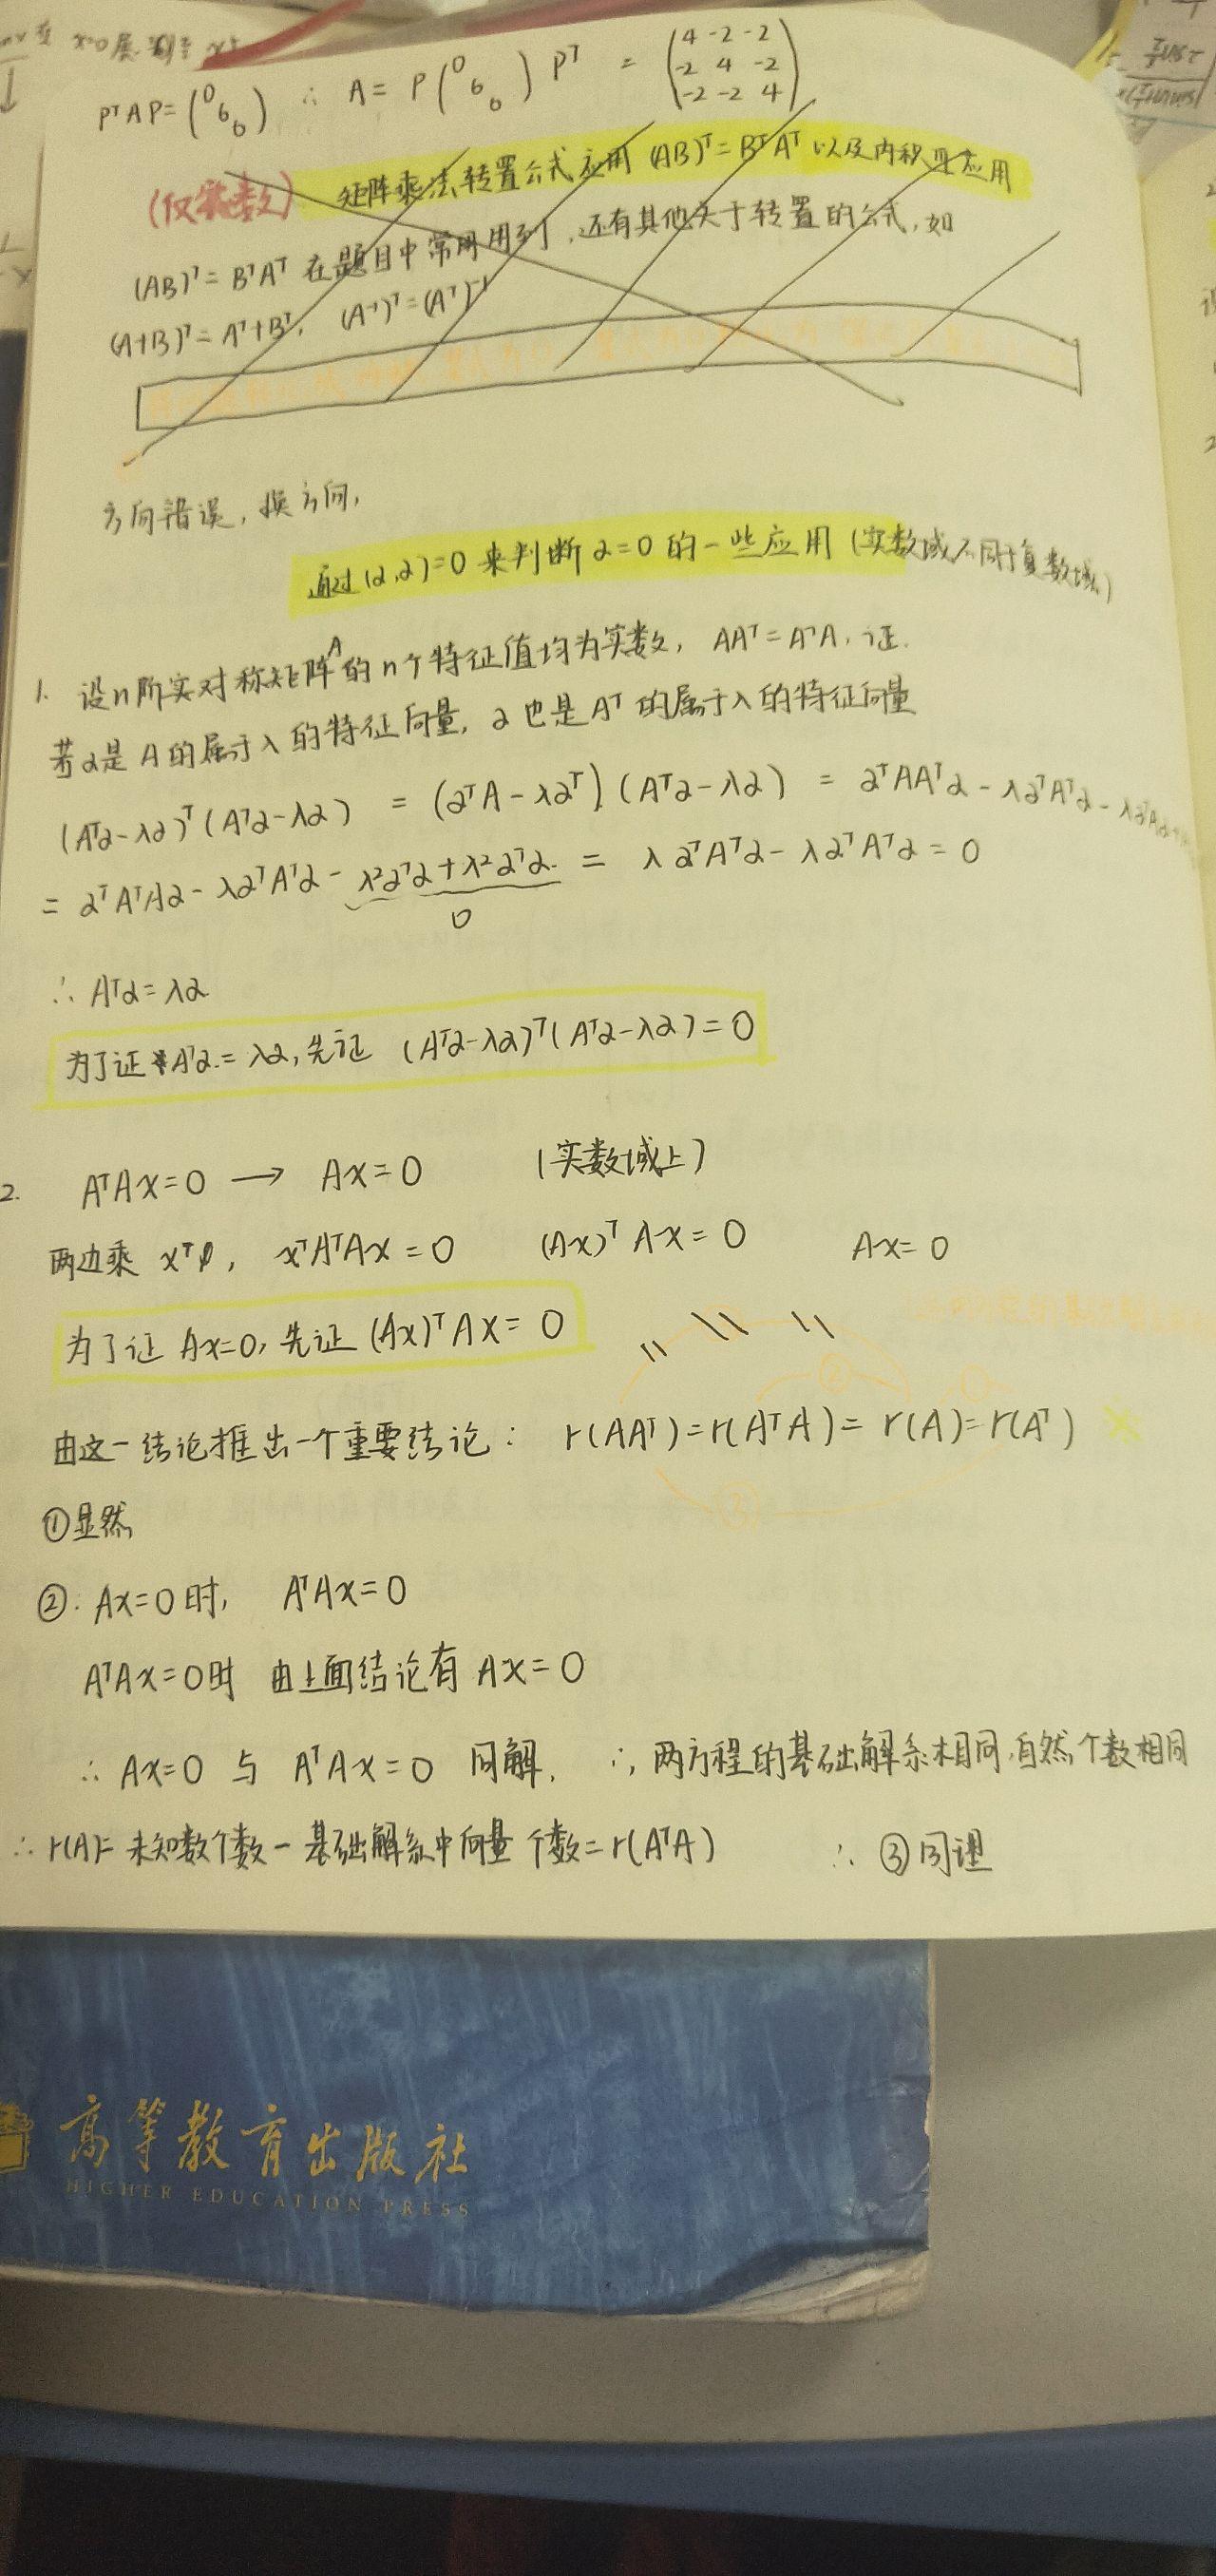 PᵀAP=(0 6 6) ∴ A = P(0 6 6)Pᵀ = (4 -2 -2
-2 4 -2
-2 -2 4)
(仅实数) 矩阵乘法转置公式应用 (AB)ᵀ=BᵀAᵀ 以及内积应用
(AB)ᵀ=BᵀAᵀ 在题目中常用用到,还有其他关于转置的公式,如
(A+B)ᵀ=Aᵀ+Bᵀ, (A⁻¹)ᵀ=(Aᵀ)⁻¹
方向错误,换方向,
通过(α,α)=0来判断α=0的一些应用(实数域不同于复数域)
1. 设n阶实对称矩阵A的n个特征值均为实数, AAᵀ=AᵀA,证.
若α是A的属于λ的特征向量, α也是Aᵀ的属于λ的特征向量
(Aᵀα-λα)ᵀ(Aᵀα-λα) = (αᵀA-λαᵀ)(Aᵀα-λα) = αᵀAAᵀα-λαᵀAᵀα-
= αᵀAᵀAα-λαᵀAᵀα-λ²αᵀα+λ²αᵀα = λαᵀAᵀα-λαᵀAᵀα=0
0
∴ Aᵀα=λα
为了证Aᵀα=λα,先证 (Aᵀα-λα)ᵀ(Aᵀα-λα)=0
2. AᵀAx=0 → Ax=0 (实数域上)
两边乘 xᵀ, xᵀAᵀAx=0 (Ax)ᵀAx=0 Ax=0
为了证 Ax=0,先证 (Ax)ᵀAx=0
由这一结论推出一个重要结论: r(AAᵀ)=r(AᵀA)=r(A)=r(Aᵀ)
②
③
①显然
②: Ax=0时, AᵀAx=0
AᵀAx=0时 由上面结论有 Ax=0
∴ Ax=0 与 AᵀAx=0 同解. ∴ 两方程的基础解系相同,自然个数相同
∴ r(A)=未知数个数-基础解系中向量个数=r(AᵀA) ∴ ③同理
高等教育出版社
HIGHER EDUCATION PRESS